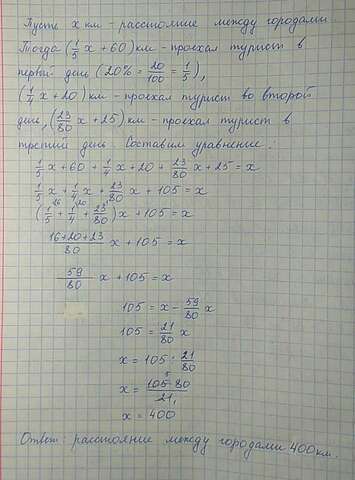 Пусть х км - расстояние между городами
Тогда (1/5 х + 60) км - проехал турист в
первый день (20% = 20/100 = 1/5),
(1/4 х + 20) км - проехал турист во второй
день, (23/80 х + 25) км - проехал турист в
третий день. Составим уравнение:
1/5 х + 60 + 1/4 х + 20 + 23/80 х + 25 = х
1/5 х + 1/4 х + 23/80 х + 105 = х
(1/5 + 1/4 + 23/80) х + 105 = х
16+20+23/80 х + 105 = х
59/80 х + 105 = х
105 = х - 59/80 х
105 = 21/80 х
х = 105 : 21/80
х = 105·80/21
х = 400
Ответ: расстояние между городами 400 км.